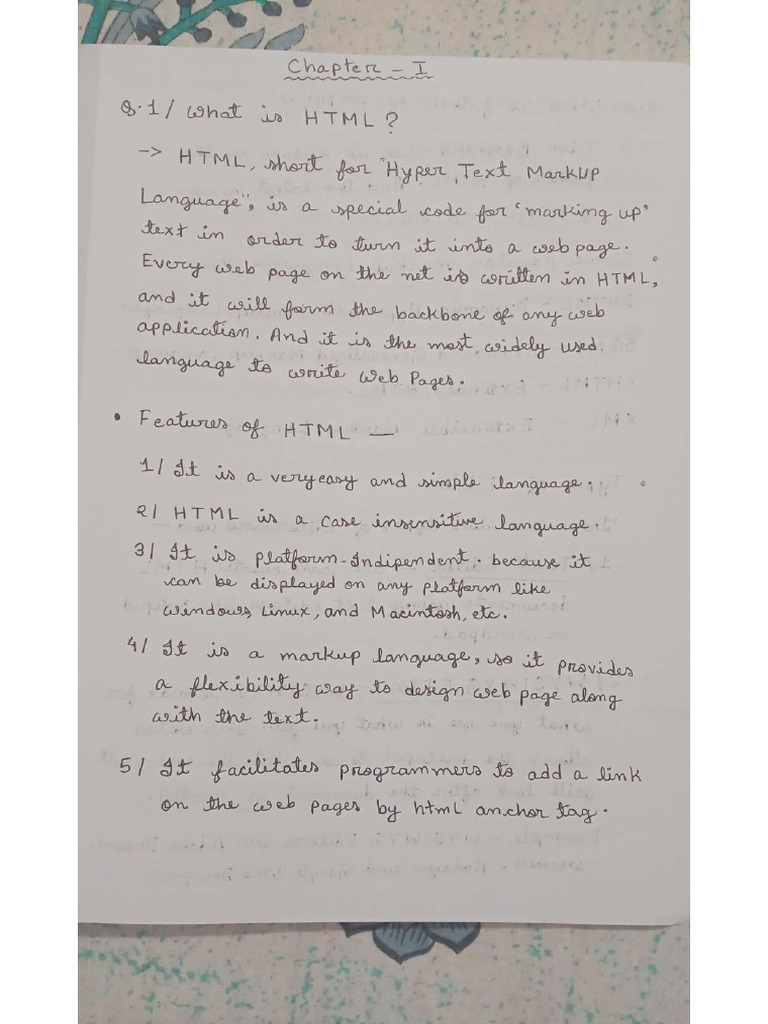 Chapter - I
Q.1/ What is HTML?
-> HTML, short for "Hyper Text MarkUp
Language", is a special code for "marking up"
text in order to turn it into a web page.
Every web page on the net is written in HTML,
and it will form the backbone of any web
application. And it is the most widely used
language to write Web Pages.
• Features of HTML —
1/ It is a very easy and simple language.
2/ HTML is a case insensitive language.
3/ It is platform-Indipendent. because it
can be displayed on any platform like
windows, Linux, and Macintosh, etc.
4/ It is a markup language, so it provides
a flexibility way to design web page along
with the text.
5/ It facilitates programmers to add a link
on the web pages by html anchor tag.